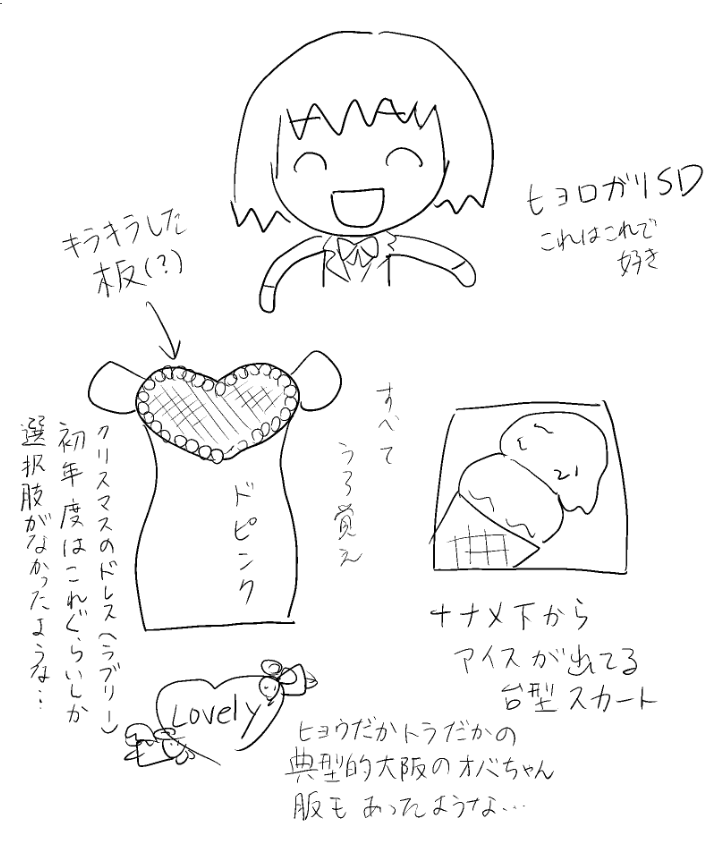 ヒョロガリSD
これはこれで
好き
キラキラした
板(?)
すべて
うろ覚え
ドピンク
クリスマスのドレス(ラブリー)
初年度はこれぐらいしか
選択肢がなかったような…
ナナメ下から
アイスが出てる
台型スカート
Lovely
ヒョウだかトラだかの
典型的大阪のオバちゃん
服もあったような…